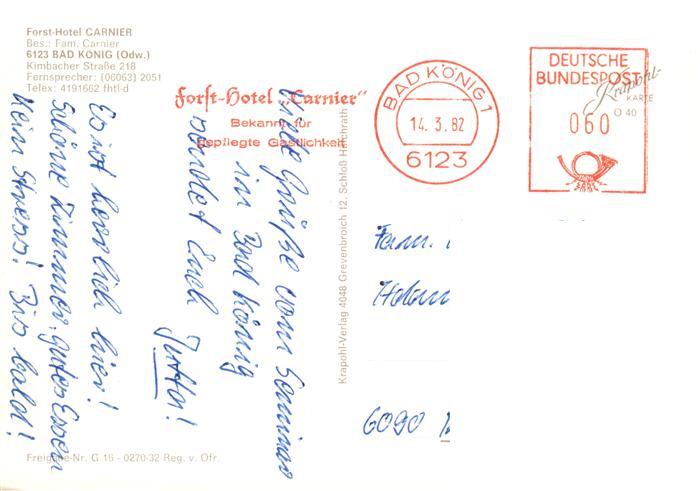 Forst-Hotel CARNIER
Bes.: Fam. Carnier
6123 BAD KÖNIG (Odw.)
Kimbacher Straße 218
Fernsprecher: (06063) 2051
Telex: 4191662 fhtl-d
Forst-Hotel „Carnier"
Bekannt für
gepflegte Gastlichkeit
BAD KÖNIG 1
14.3.82
6123
DEUTSCHE
BUNDESPOST
060
Krapohl-
KARTE
O 40
Viele Grüße vom Seminar
in Bad König
sendet Euch
Jutta!
Es ist herrlich hier!
Schöne Zimmer, gutes Essen
kein Stress! Bis bald!
Krapohl-Verlag 4048 Grevenbroich 12, Schloß Hülchrath
Fam.
6090
Freigabe-Nr. G 16 - 0270-32 Reg. v. Ofr.